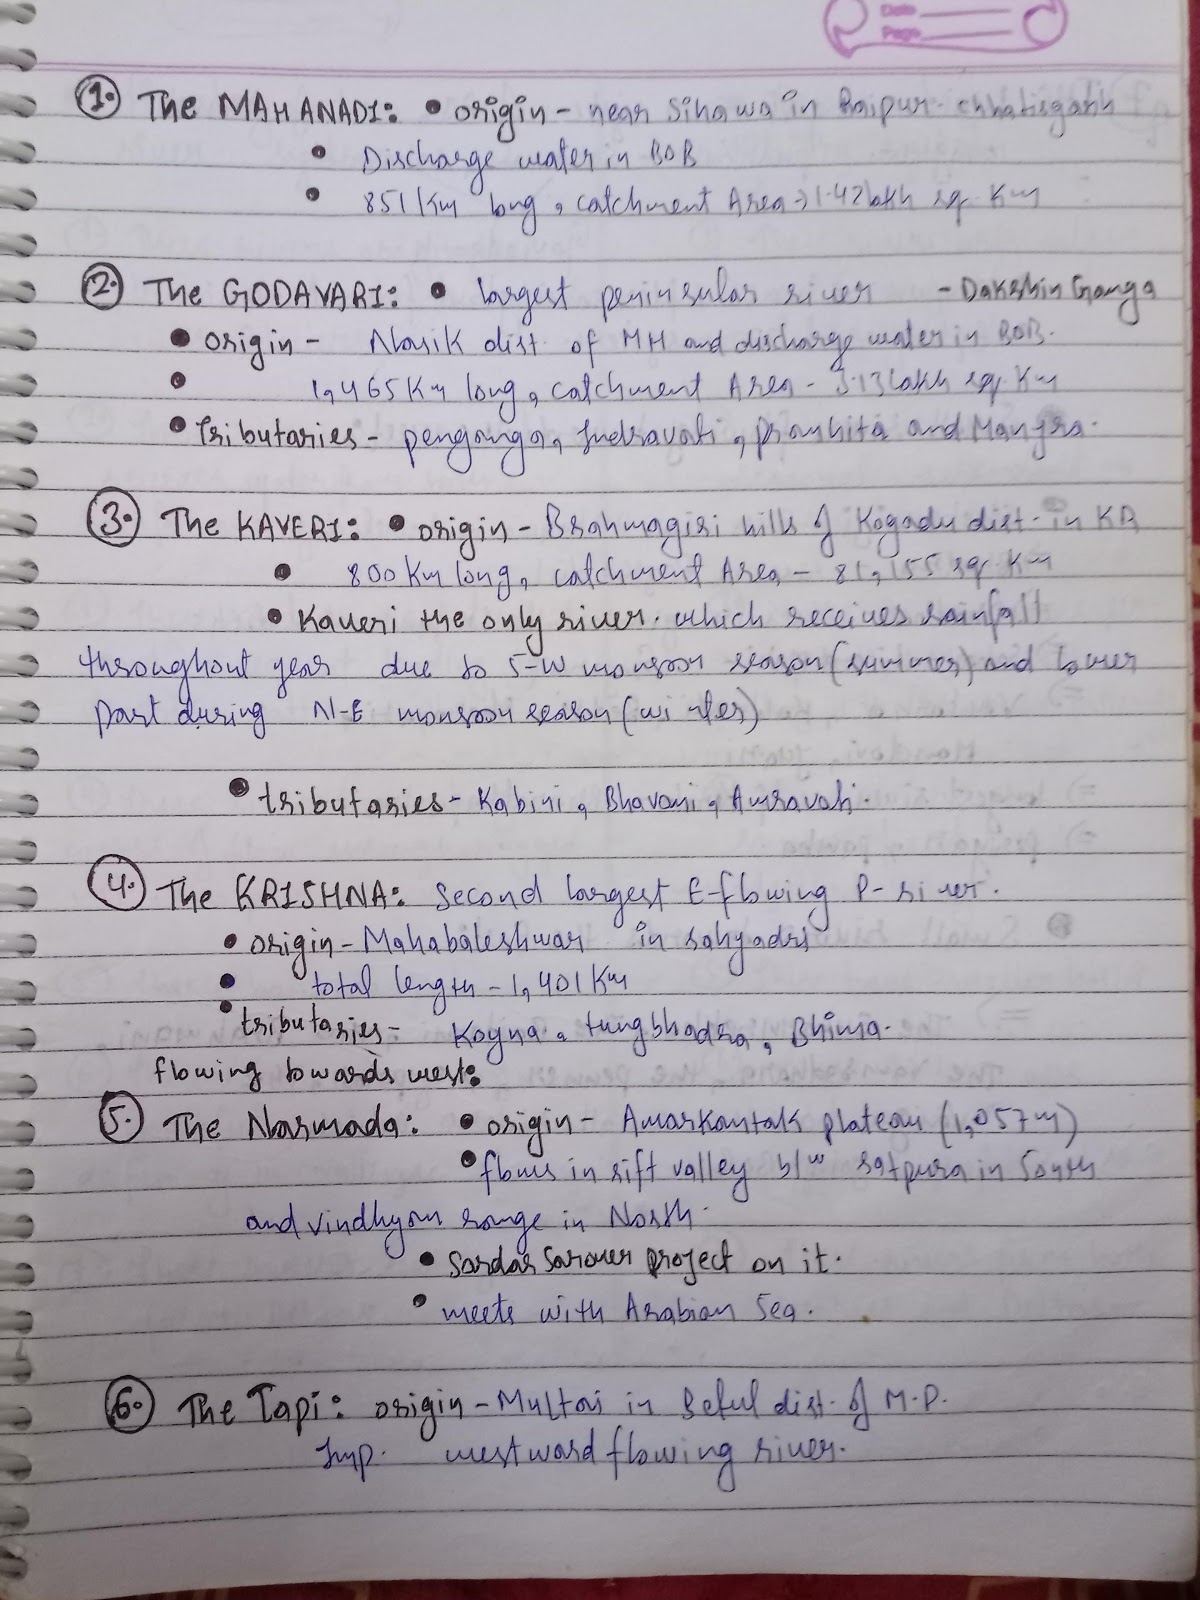 Date
Page
1. The MAHANADI: • origin - near Sihawa in Raipur. Chhatisgarh
• Discharge water in BOB
• 851 Km long, catchment Area → 1.42 lakh sq. Km
2. The GODAVARI: • largest peninsular river - Dakshin Ganga
• origin - Nasik dist. of MH and discharge water in BOB.
• 1,465 Km long, catchment Area - 3.13 lakh sq. Km
• Tributaries - penganga, Indravati, Pranhita and Manjra.
3. The KAVERI: • origin - Brahmagiri hills of Kogadu dist. in KA
• 800 Km long, catchment Area - 81,155 sq. Km
• Kaveri the only river. which receives rainfall
throughout year due to S-W monsoon season (summer) and lower
part during N-E monsoon season (winter)
• tributaries - Kabini, Bhavani, Amravati.
4. The KRISHNA: Second largest E-flowing P-river.
• origin - Mahabaleshwar in sahyadri
• total length - 1,401 Km
• tributaries - Koyna, tungbhadra, Bhima.
flowing towards west:
5. The Narmada: • origin - Amarkantak plateau (1,057 m)
• flows in rift valley b/w satpura in South
and vindhyan range in North.
• Sardar Sarover project on it.
• meets with Arabian Sea.
6. The Tapi: origin - Multai in Betul dist. of M.P.
Imp. westward flowing river.